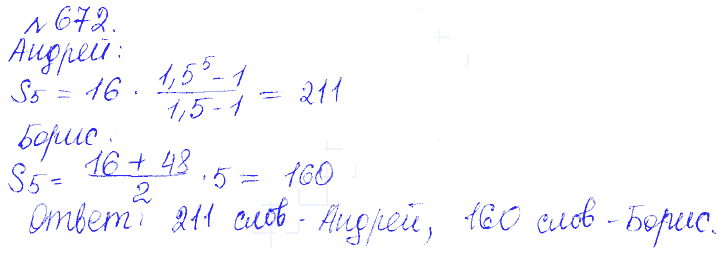 №672.
Андрей:
S5 = 16 · (1,5^5 - 1)/(1,5 - 1) = 211
Борис:
S5 = (16 + 48)/2 · 5 = 160
Ответ: 211 слов - Андрей, 160 слов - Борис.